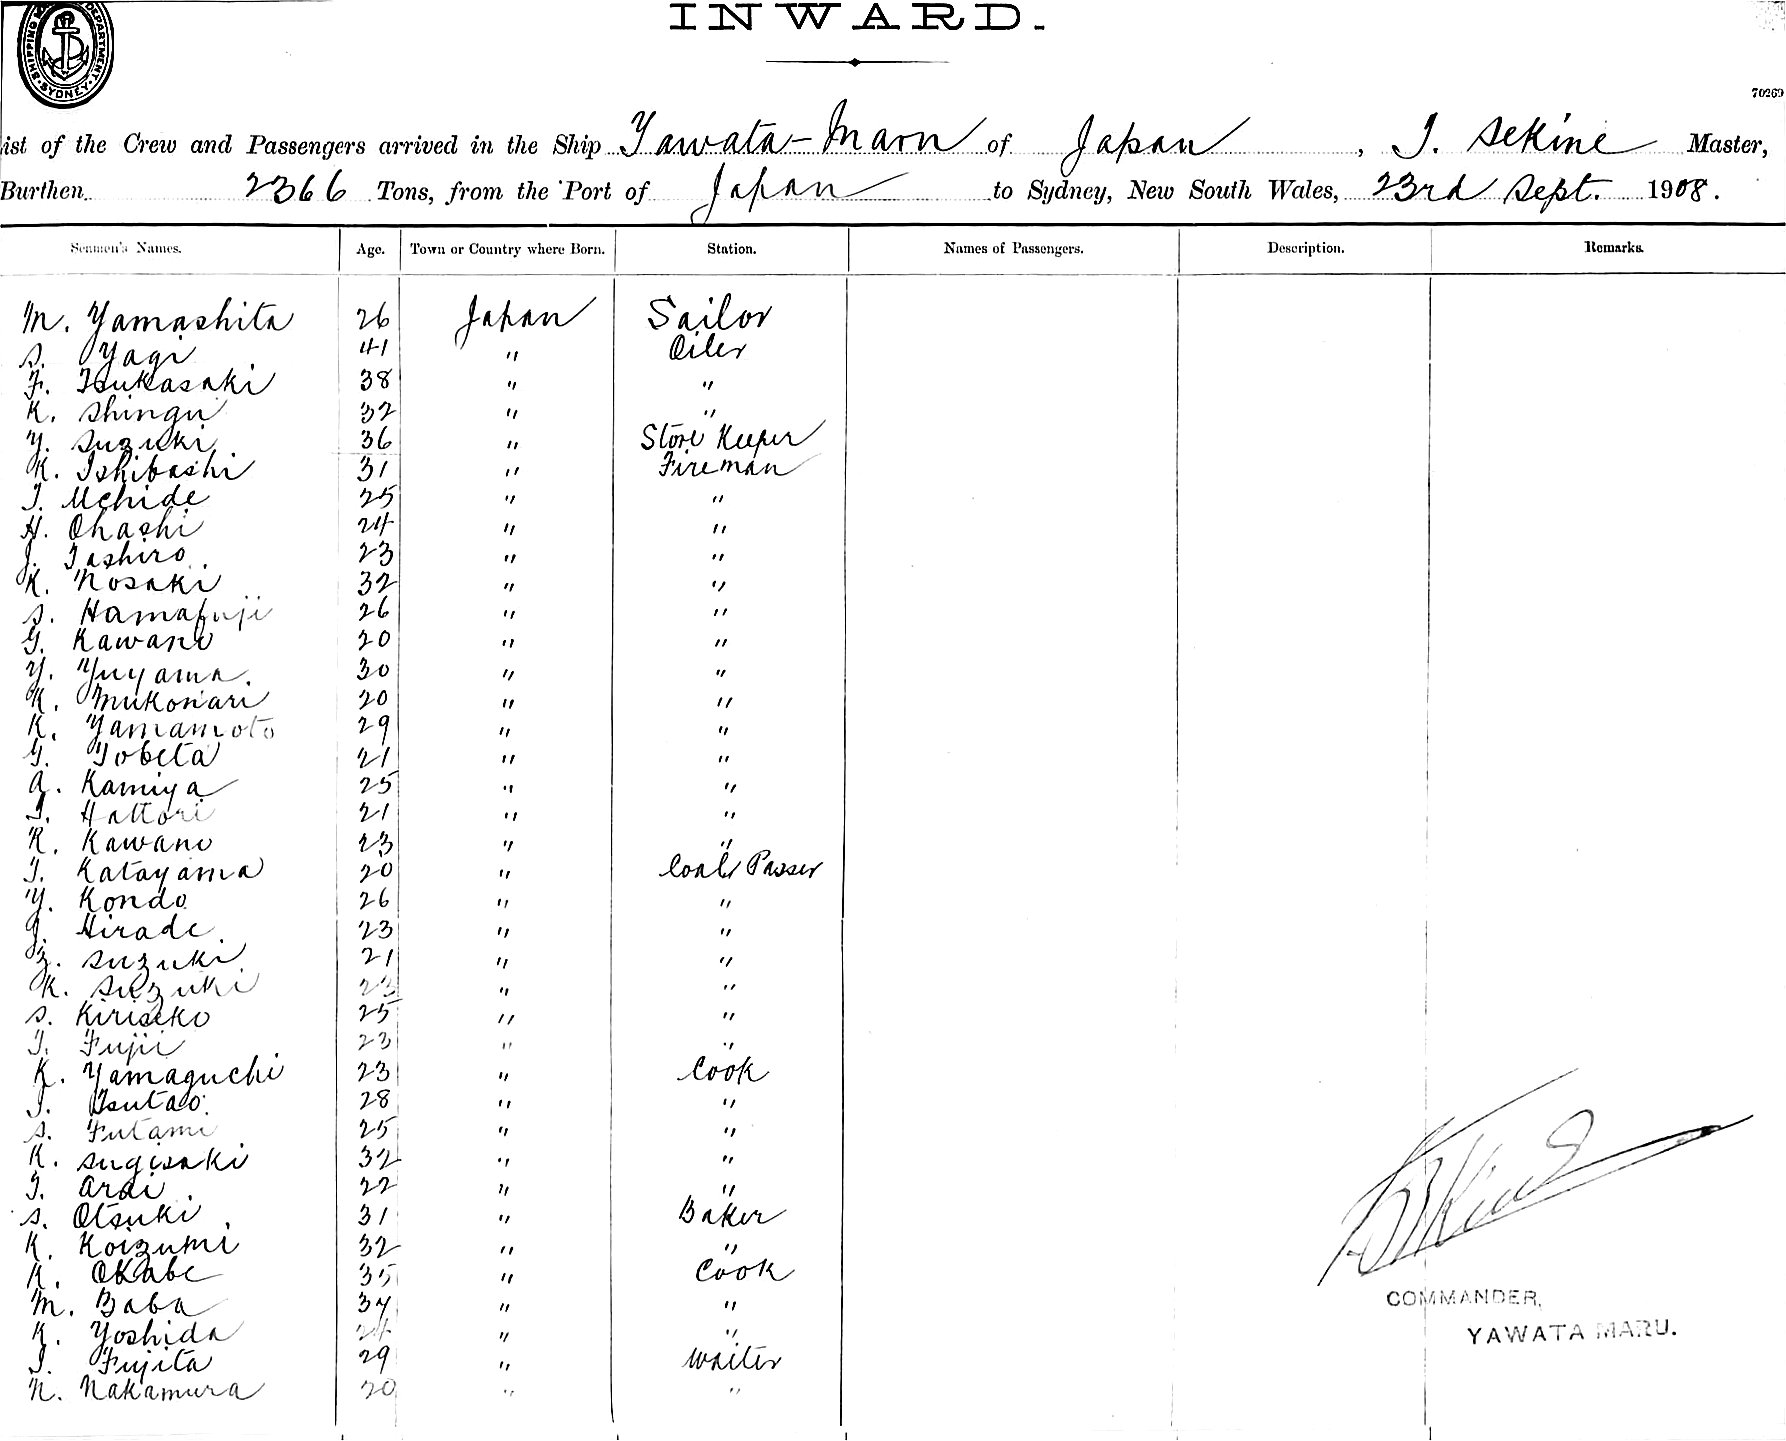 INWARD.
SHIPPING DEPARTMENT SYDNEY
70269
ist of the Crew and Passengers arrived in the Ship Yawata-Maru of Japan, T. Sekine Master,
Burthen 2366 Tons, from the Port of Japan to Sydney, New South Wales, 23rd Sept. 1908.
Seamen's Names. Age. Town or Country where Born. Station. Names of Passengers. Description. Remarks.
M. Yamashita 26 Japan Sailor
S. Yagi 41 " Oiler
F. Tsukasaki 38 " "
K. Shingu 32 " "
Y. Suzuki 36 " Store Keeper
K. Ishibashi 31 " Fireman
T. Uchide 25 " "
H. Ohashi 24 " "
J. Tashiro 23 " "
K. Nosaki 32 " "
S. Hamafuji 26 " "
G. Kawano 20 " "
Y. Yuyama. 30 " "
K. Mukonari 20 " "
K. Yamamoto 29 " "
G. Tobeta 21 " "
A. Kamiya 25 " "
T. Hattori 21 " "
K. Kawano 23 " "
T. Katayama 20 " Coal Passer
Y. Kondo 26 " "
J. Hirade 23 " "
Z. Suzuki 21 " "
K. Suzuki 23 " "
S. Kiriseko 25 " "
T. Fujii 23 " "
K. Yamaguchi 23 " Cook
T. Tsutao 28 " "
S. Futami 25 " "
K. Sugisaki 32 " "
T. Arai 22 " "
S. Otsuki 31 " Baker
K. Koizumi 32 " "
K. Okabe 35 " Cook
M. Baba 37 " "
K. Yoshida 24 " "
T. Fujita 29 " Waiter
N. Nakamura 20 " "
COMMANDER,
YAWATA MARU.